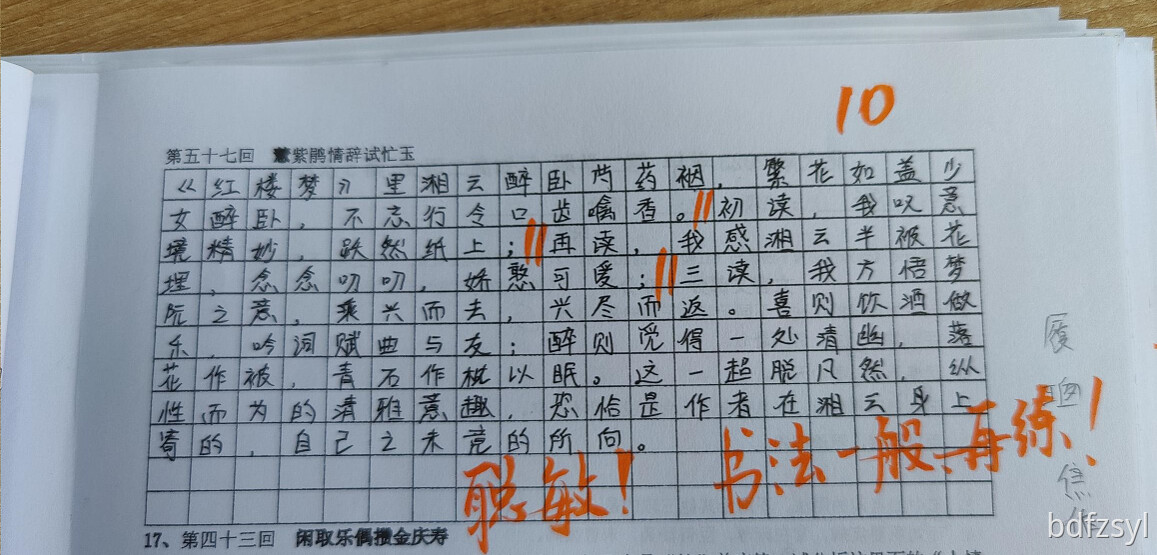 10
第五十七回 慧紫鹃情辞试忙玉
《红楼梦》里湘云醉卧芍药裀，繁花如盖少
女醉卧，不忘行令口齿噙香。初读，我叹意
境精妙，跃然纸上；再读，我感湘云半被花
埋，念念叨叨，娇憨可爱；三读，我方悟梦
阮之意，乘兴而去，兴尽而返。喜则饮酒做
乐，吟词赋曲与友；醉则觅得一处清幽，落
花作被，青石作枕以眠。这一超脱凡然，纵
性而为的清雅意趣，恐恰是作者在湘云身上
寄的，自己之未竟的所向。
聪敏！
书法一般、再练！
17、第四十三回 闲取乐偶攒金庆寿
bdfzsyl